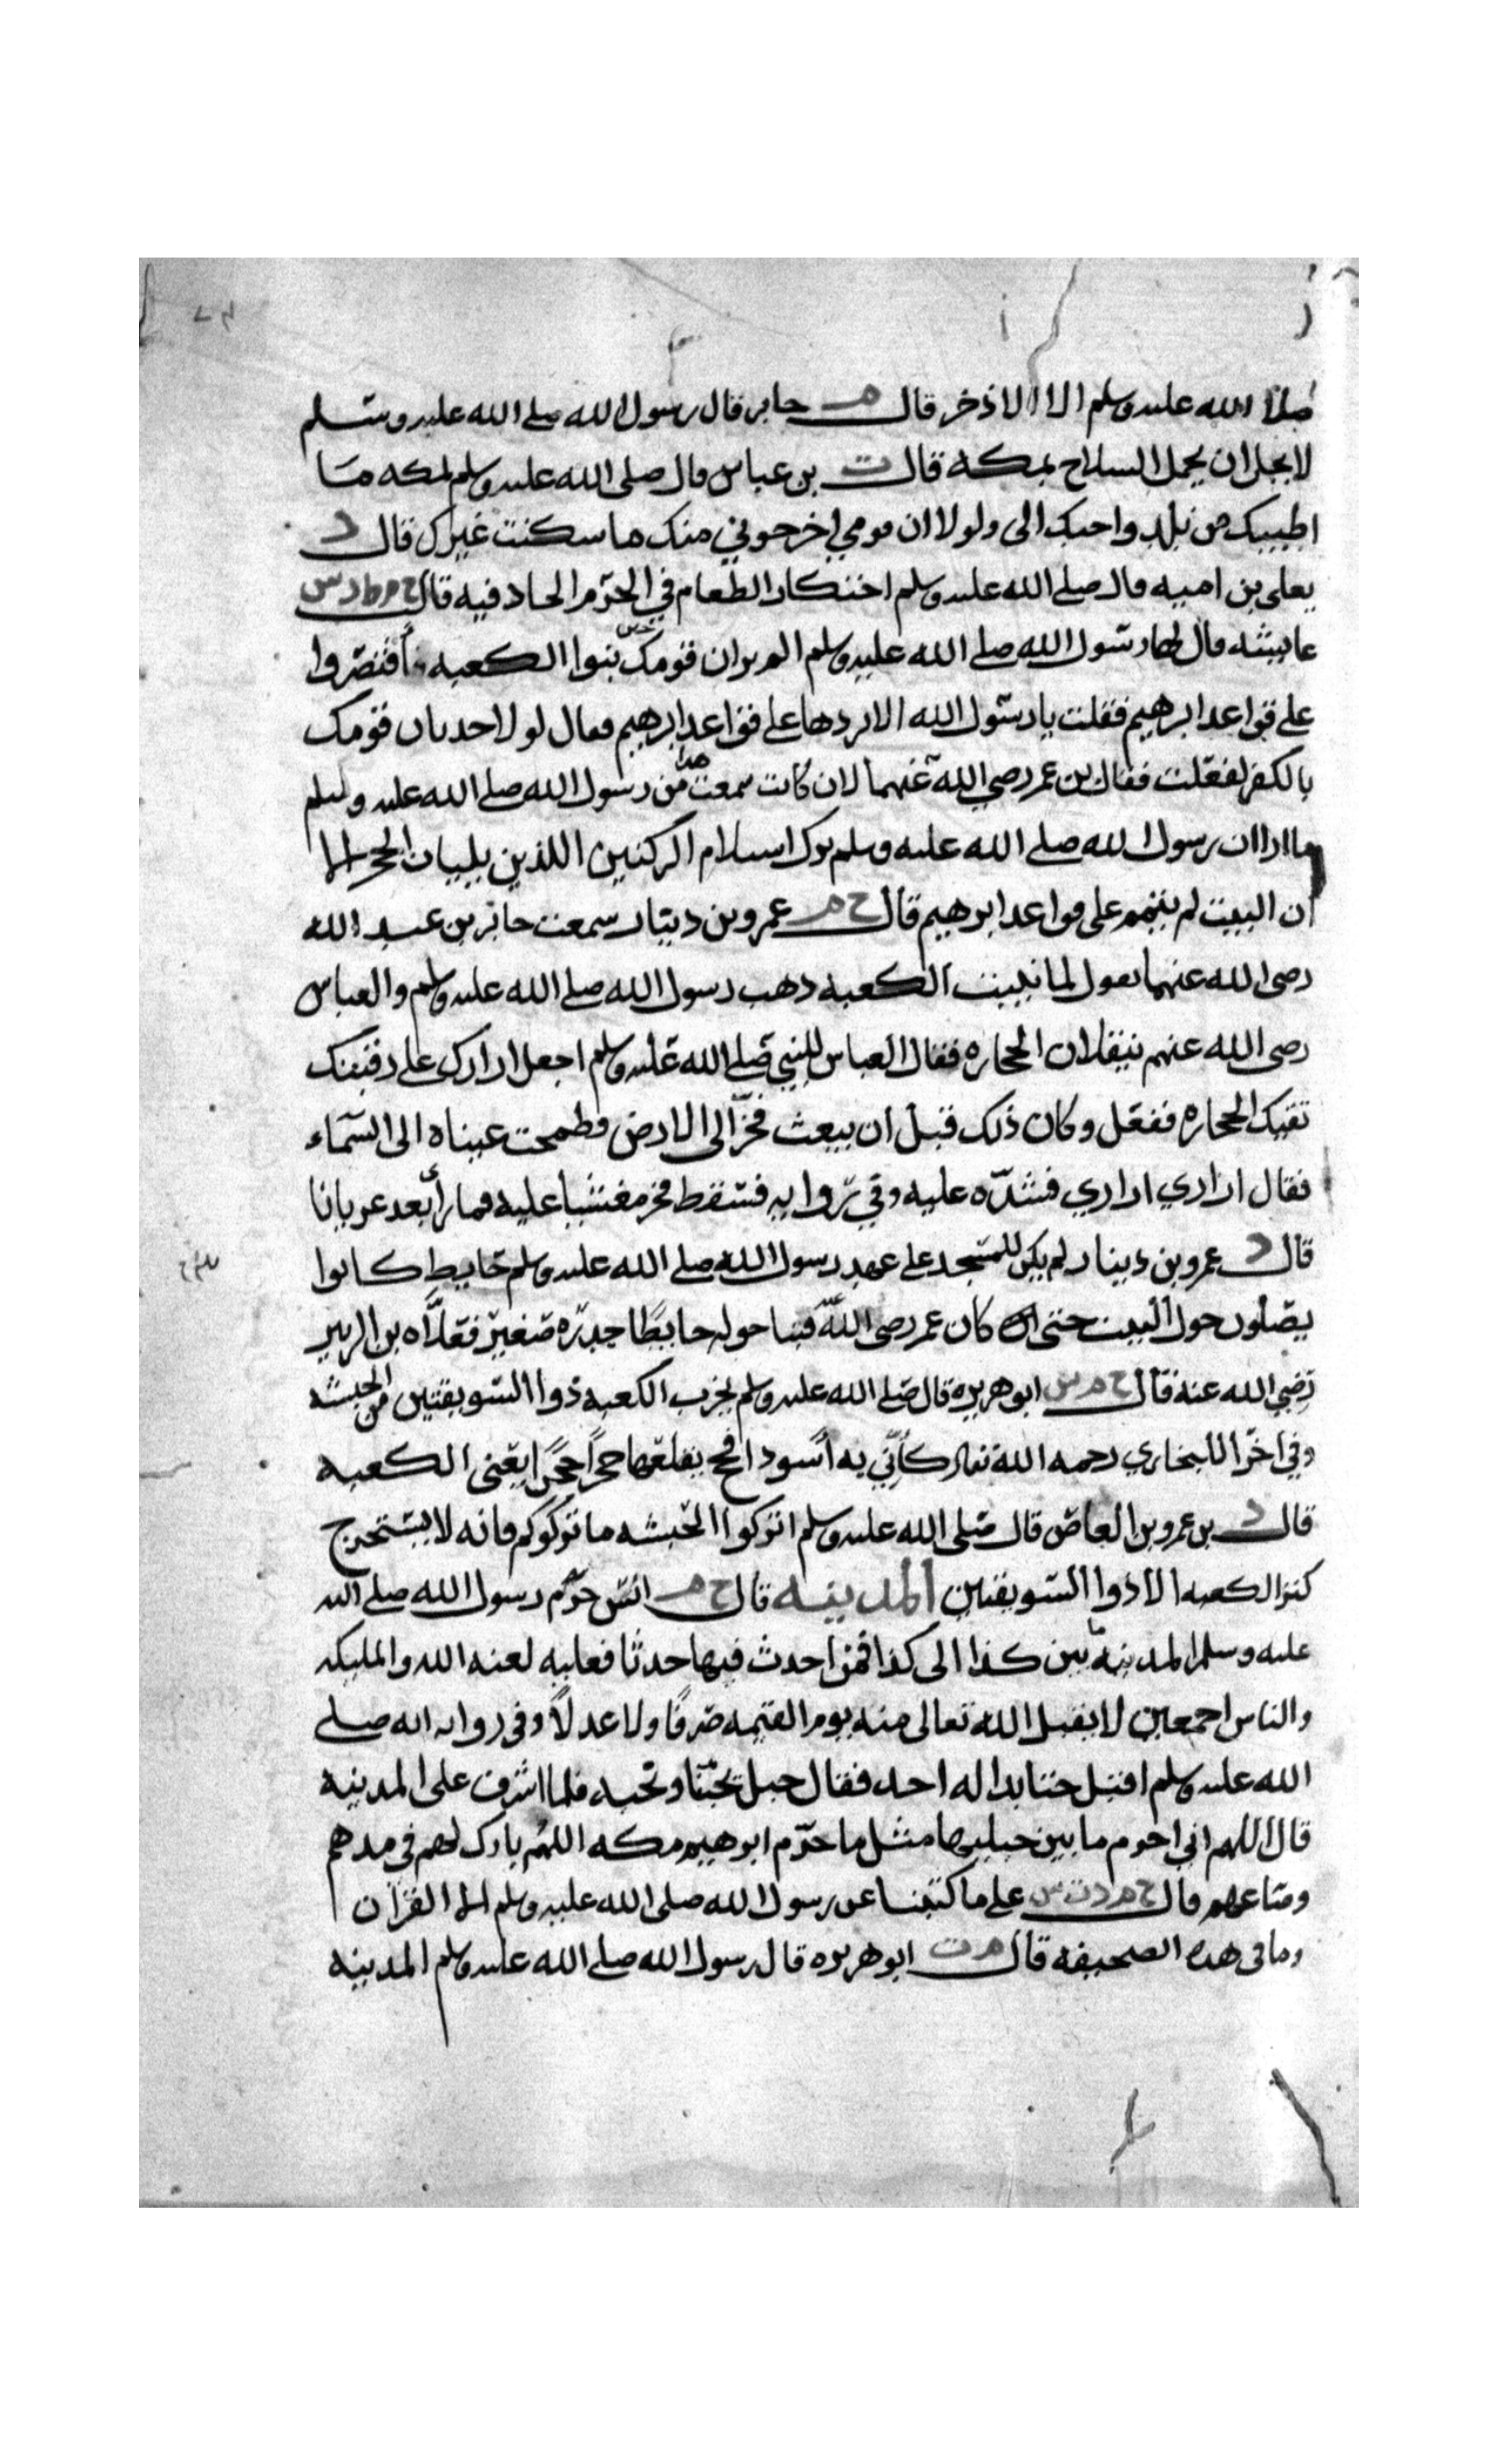 صلى الله عليه وسلم الا الاذخر قال م جابر قال رسول الله صلى الله عليه وسلم
لا يحل ان يحمل السلاح بمكة قال ت بن عباس قال صلى الله عليه وسلم لمكه ما
اطيبك من بلد واحبك الى ولولا ان قومي اخرجوني منك ما سكنت غيرك قال د
يعلى بن اميه قال صلى الله عليه وسلم احتكار الطعام في الحرم الحاد فيه قال خ م ط ت س
عايشه قال لها رسول الله صلى الله عليه وسلم الم تر ان قومك حين بنوا الكعبه اقتصروا
على قواعد ابرهيم فقلت يا رسول الله الا تردها على قواعد ابرهيم فقال لولا حدثان قومك
بالكفر لفعلت فقال بن عمر رضي الله عنهما لان كانت سمعت هذا من رسول الله صلى الله عليه وسلم
ما ارا ان رسول الله صلى الله عليه وسلم ترك استلام الركنين اللذين يليان الحجر الا
ان البيت لم يتمم على قواعد ابرهيم قال خ م عمرو بن دينار سمعت جابر بن عبد الله
رضى الله عنهما يقول لما بنيت الكعبه ذهب رسول الله صلى الله عليه وسلم والعباس
رضى الله عنهم ينقلان الحجاره فقال العباس للنبي صلى الله عليه وسلم اجعل ازارك على رقبتك
تقيك الحجاره ففعل وكان ذلك قبل ان يبعث فخر الى الارض فطمحت عيناه الى السماء
فقال ازاري ازاري فشده عليه وفي روايه فسقط فخر مغشيا عليه فما رأى بعد عريانا
قال خ عمرو بن دينار لم يكن للمسجد على عهد رسول الله صلى الله عليه وسلم حايط كانوا
يصلون حول البيت حتى كان عمر رضى الله عنه فبنا حوله حايطا جدره صغير فعلاه بن الزبير
رضي الله عنه قال خ م س ابو هريره قال صلى الله عليه وسلم يخرب الكعبه ذوا السويقتين من الحبشه
وفي اخرا للبخاري رحمه الله تعالى كأني به أسود افحج يقلعها حجرا حجرا يعنى الكعبه
قال د بن عمرو بن العاص قال صلى الله عليه وسلم اتركوا الحبشه ما تركوكم فانه لا يستخرج
كنز الكعبه الا ذوا السويقتين المدينه قال خ م انس حرم رسول الله صلى الله
عليه وسلم المدينة بين كذا الى كذا فمن احدث فيها حدثا فعليه لعنه الله والمليكه
والناس اجمعين لا يقبل الله تعالى منه يوم القيمه صرفا ولا عدلا وفي روايه انه صلى
الله عليه وسلم اقبل حتا بدا له احد فقال جبل يحبنا ونحبه فلما اشرف على المدينه
قال اللهم اني احرم ما بين جبليها مثل ما حرم ابرهيم مكه اللهم بارك لهم في مدهم
وصاعهم قال خ م د ت س على ما كتبنا عن رسول الله صلى الله عليه وسلم الا القرآن
وما في هذه الصحيفه قال م ت ابو هريره قال رسول الله صلى الله عليه وسلم المدينه